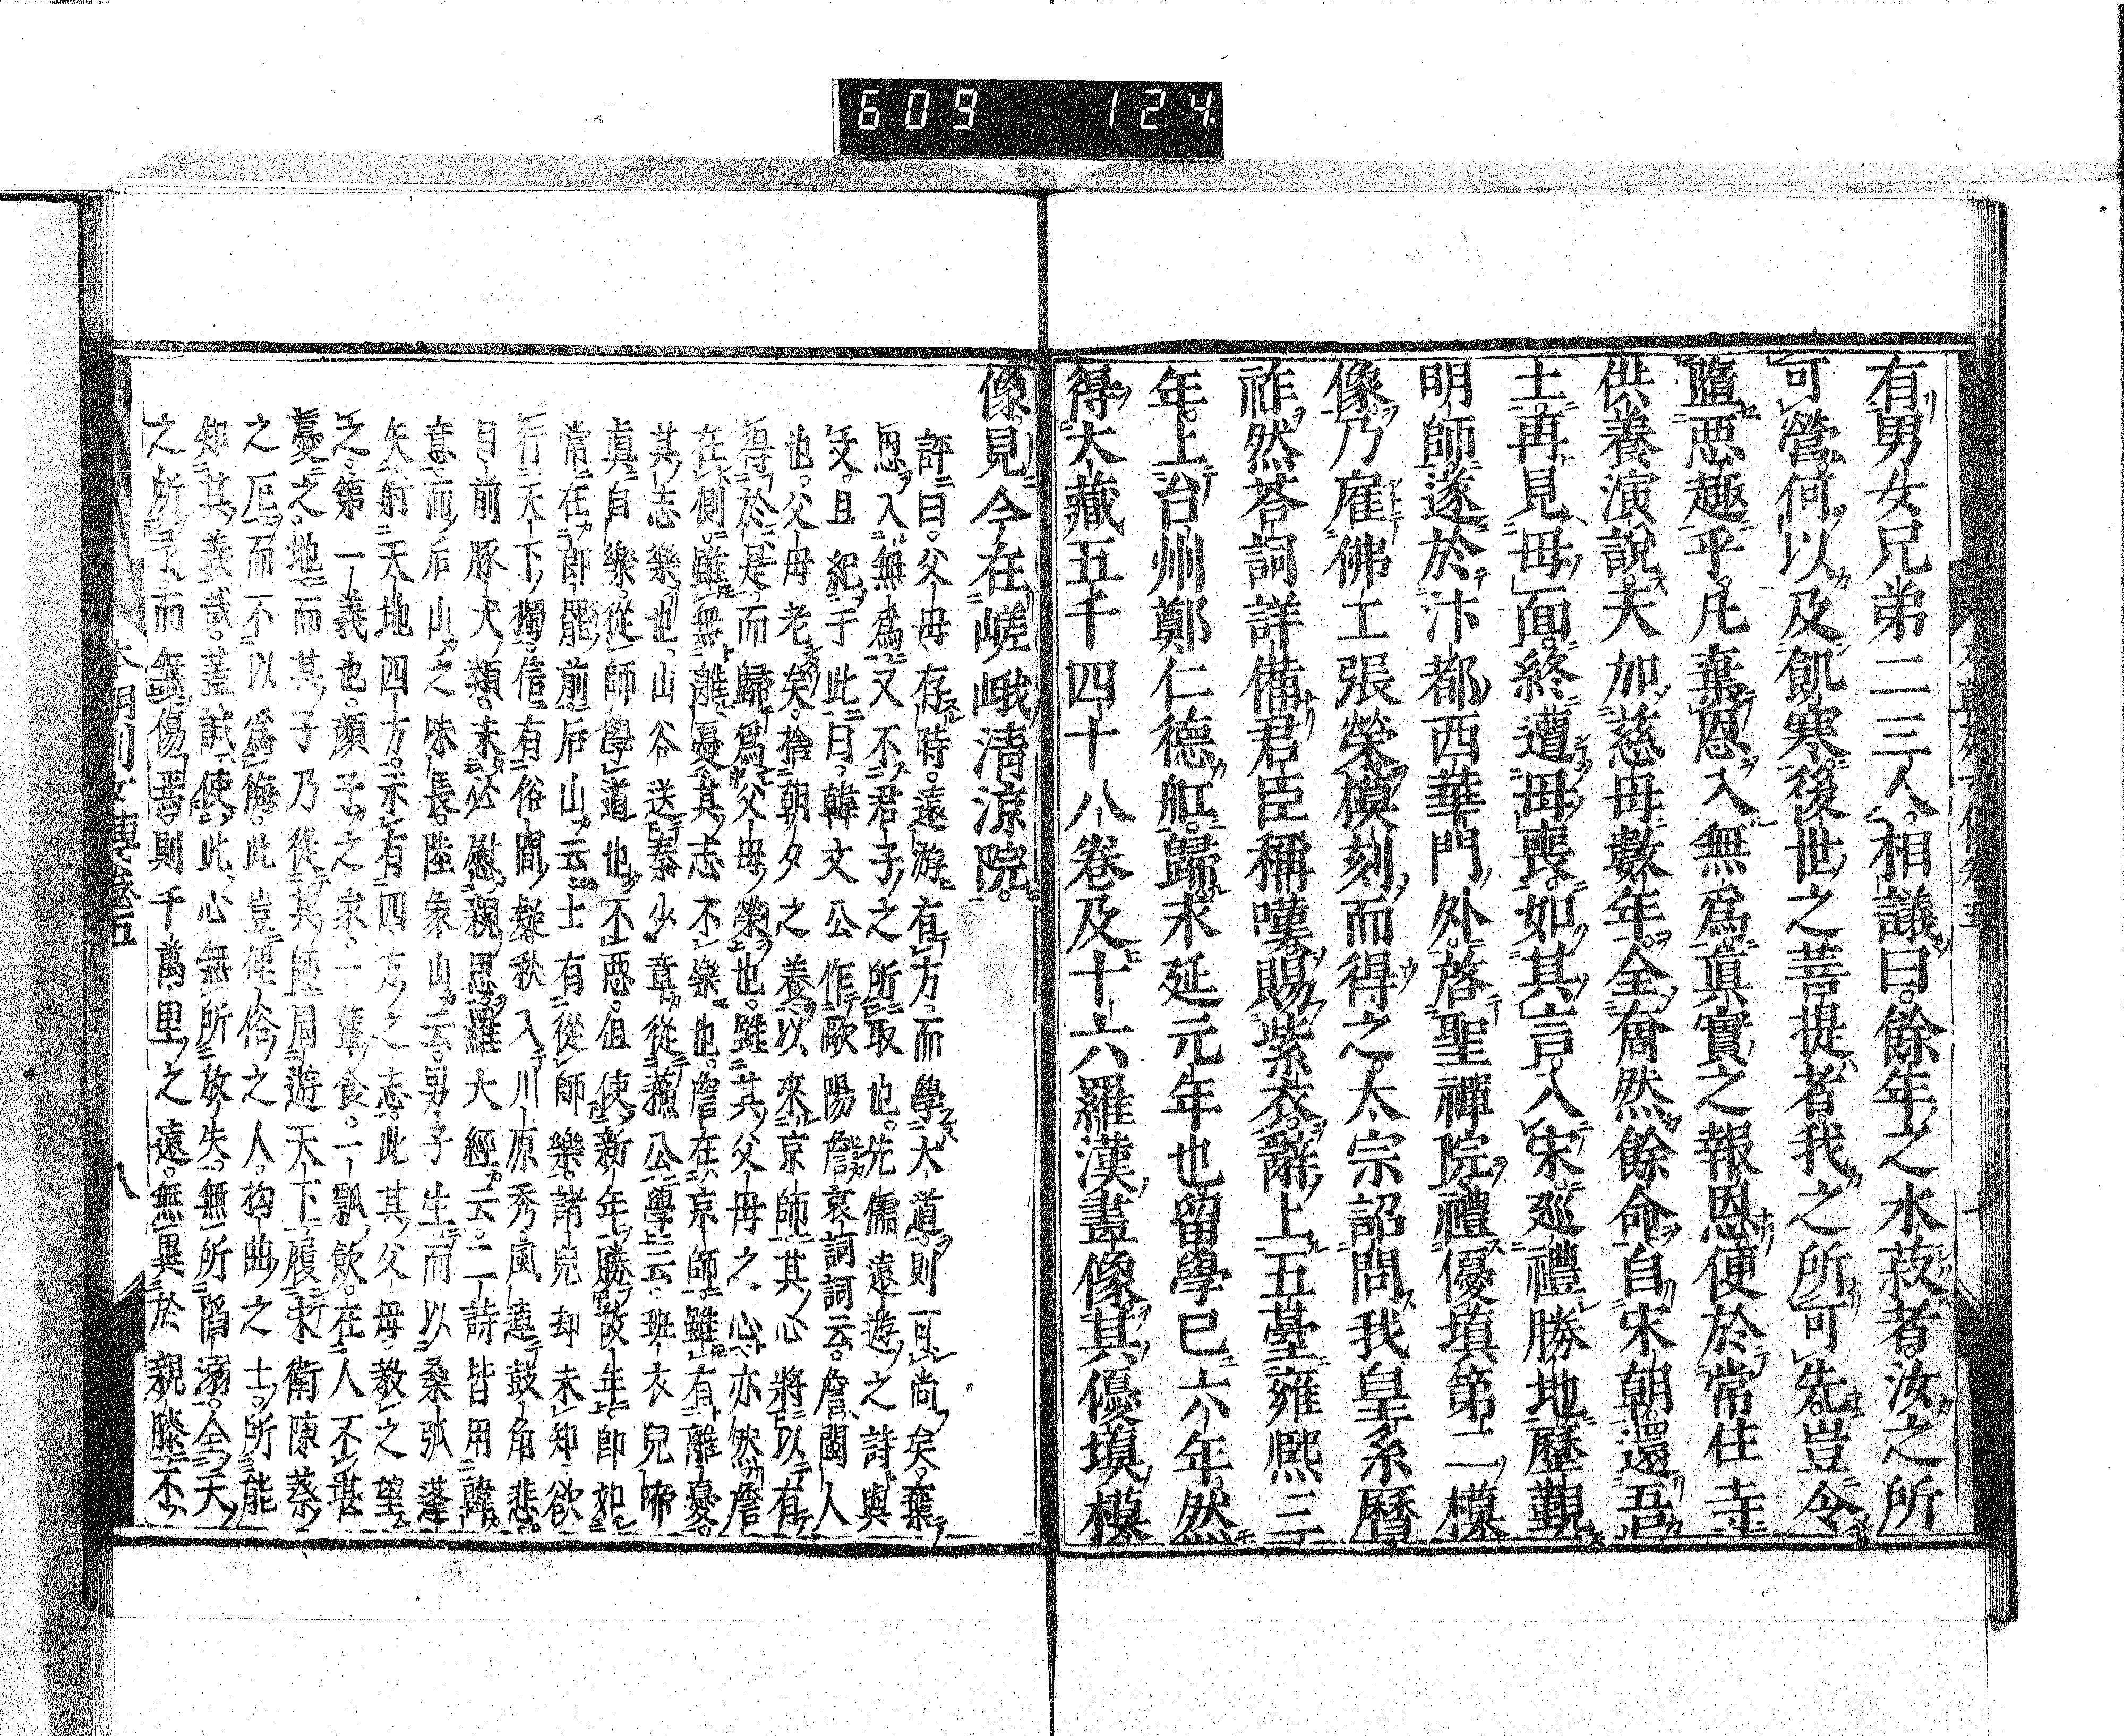 609 124
有男女兄弟二三人相議曰餘年之水菽者汝之所
可營何以及飢寒後世之菩提者我之所可先豈令
墮惡趣乎凡棄恩入無爲眞實之報恩便於常住寺
供養演說夫加慈母數年全裔然餘命自宋朝還吾
土再見母面終遭母喪如其言入宋巡禮勝地歷觀
明師遂於汴都西華門外啓聖禪院禮優塡第二模
像乃雇佛工張榮模刻而得之太宗詔問我皇系曆
祚然荅詞詳備君臣稱嘆賜紫衣辭上五臺雍熙三
年上台州鄭仁德舡歸永延元年也留學已六年然
得大藏五千四十八卷及十六羅漢畫像其優塡模
像見今在嵯峨淸涼院
評曰父母存時遠游有方而學大道則可尚矣棄
恩入無爲又不君子之所取也先儒遠遊之詩與
文且紀于此曰韓文公作歐陽詹哀詞詞云詹閩人
也父母老矣捨朝夕之養以來京師其心將以有
得於是而歸爲父母榮也雖其父母之心亦然詹
在側雖無離憂其志不樂也詹在京師雖有離憂
其志樂也山谷送秦少章從蘓公學云班衣兒啼
眞自樂從師學道也不惡但使新年勝故年即如
常在郎罷前后山云士有從師樂諸兒却未知欲
行天下獨信有俗間疑秋入川原秀風連鼓角悲
目前豚犬類未必慰親思羅大經云二詩皆用韓
意而后山之味長陸象山云男子生而以桑弧蓬
矢射天地四方示有四方之志此其父母教之望
之第一義也顏子之家一簞食一瓢飮在人不堪
憂之地而其子乃從其師周遊天下履宋衛陳蔡
之厄而不以爲悔此豈俚俗之人拘曲之士所能
知其義哉蓋誠使此心無所放失無所陷溺全天
之所予而無傷焉則千萬里之遠無異於親膝不
本朝列女傳卷五
八